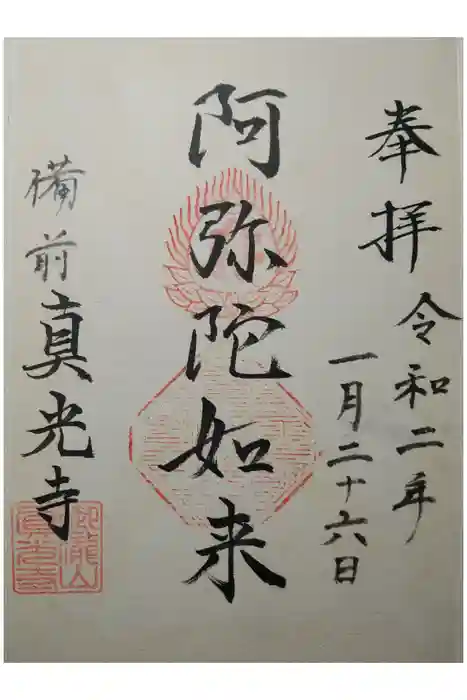 奉拝
令和二年
一月二十六日
阿弥陀如来
備前
真光寺